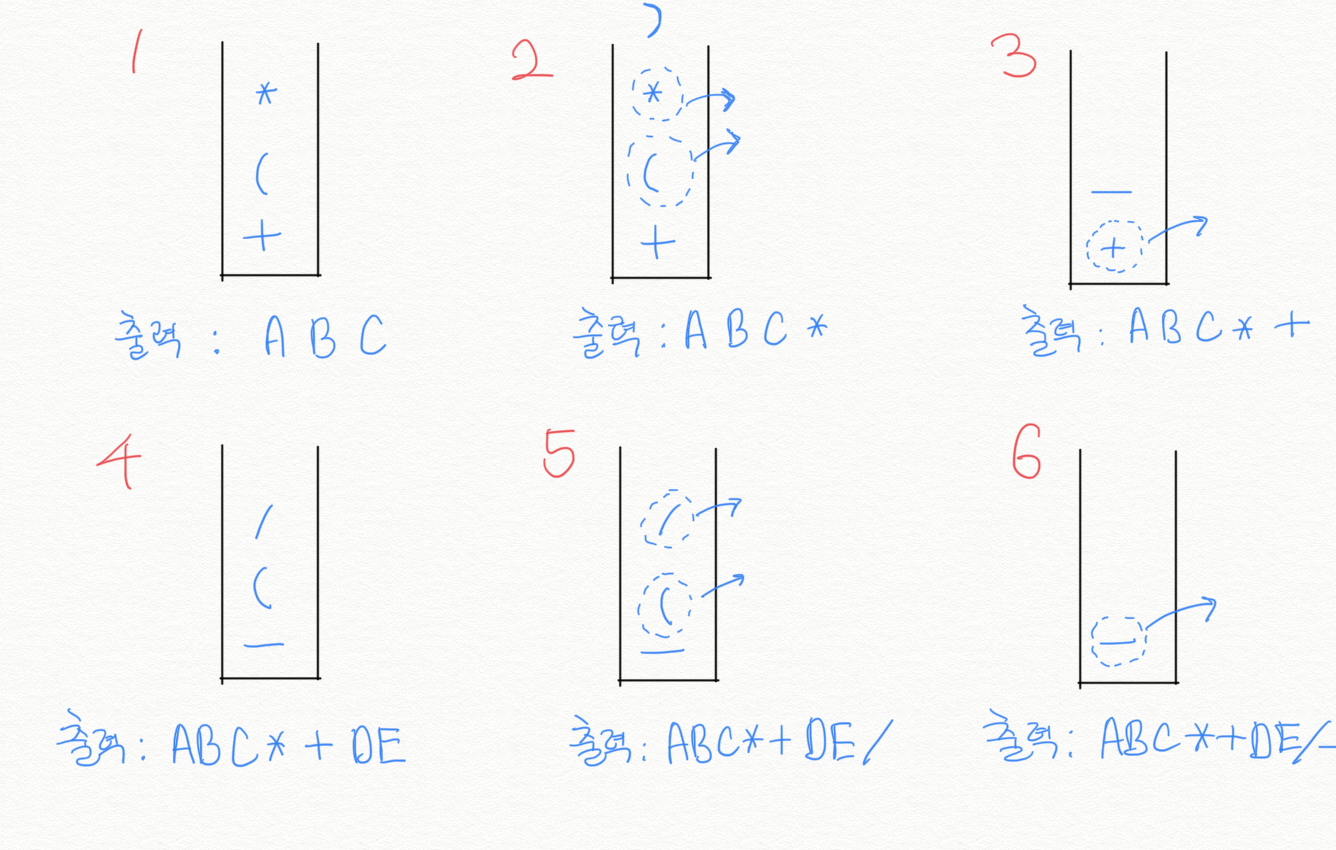 1
*
(
+
출력 : A B C
2
)
*
(
+
출력 : A B C *
3
—
+
출력 : A B C * +
4
/
(
—
출력 : ABC* + DE
5
/
(
—
출력 : ABC*+ DE/
6
—
출력 : ABC*+DE/-